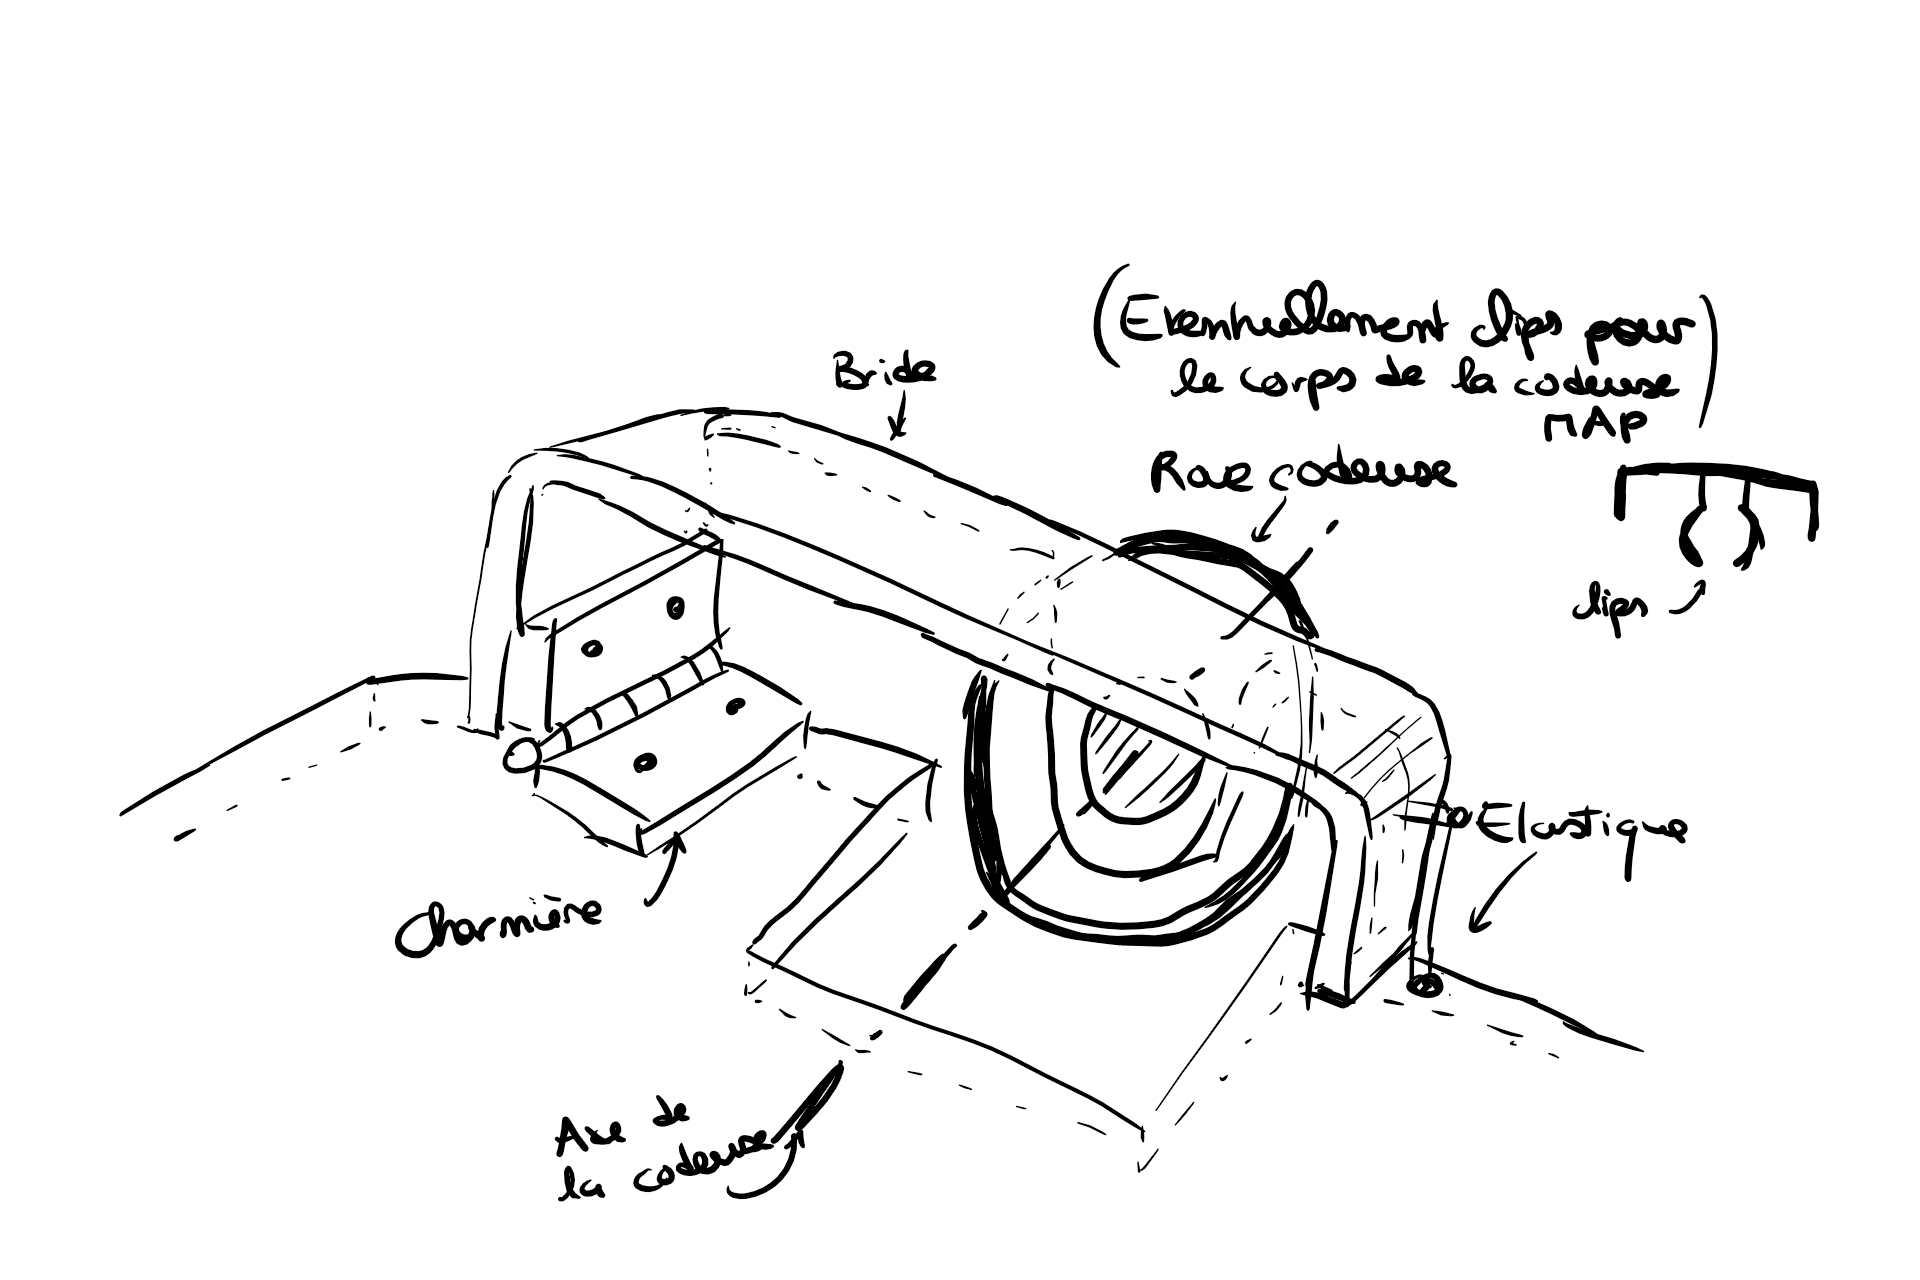 (Eventuellement clips pour
le corps de la codeuse)
MAP
Bride
Roue codeuse
clips
Elastique
Charnière
Axe de
la codeuse